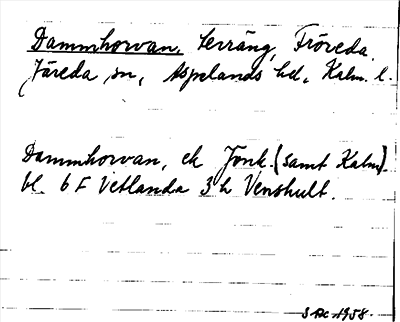 Dammhorvan, terräng, Fröreda,
Järeda sn, Aspelands hd, Kalm. l.
Dammhorvan, ek Jönk. (samt Kalm).
bl. 6 F Vetlanda 3 h Venshult.
1958.